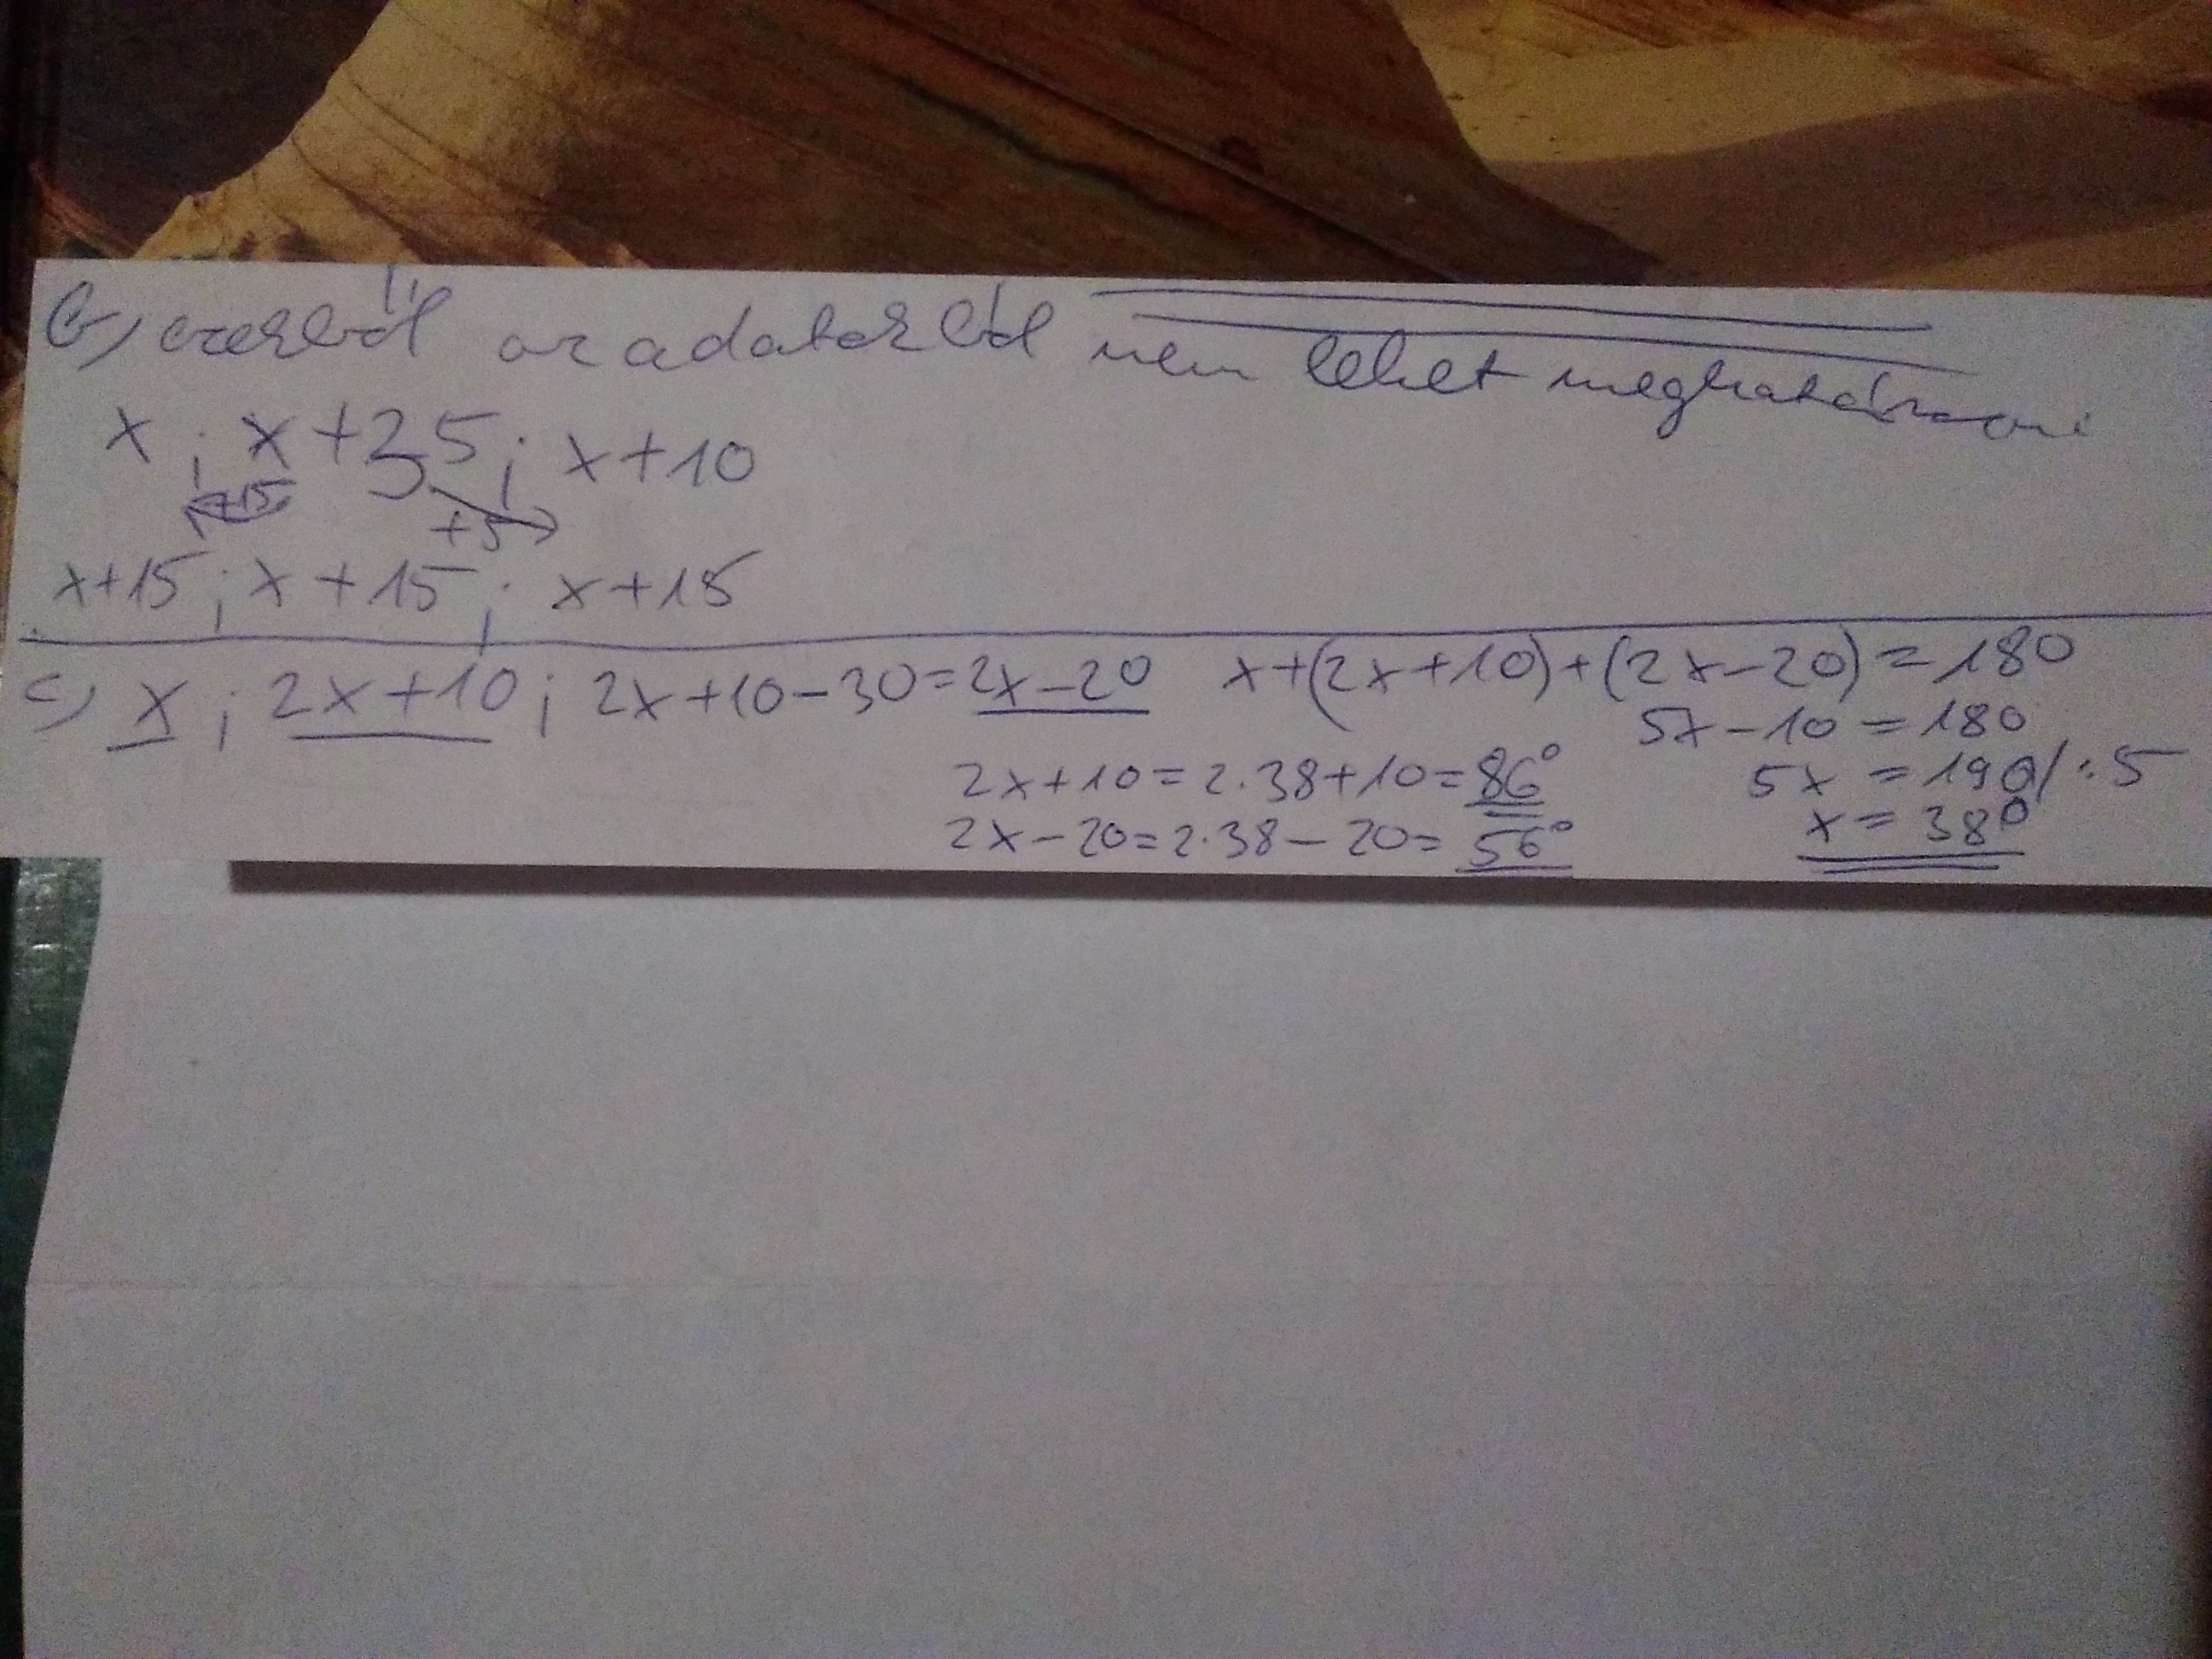 b, ezekből az adatokból nem lehet meghatározni
x ; x + 35 ; x + 10
+15
+5
x+15 ; x + 15 ; x + 15
c) x ; 2x + 10 ; 2x + 10 - 30 = 2x - 20 x + (2x + 10) + (2x - 20) = 180
5x - 10 = 180
2x + 10 = 2·38 + 10 = 86° 5x = 190 / :5
2x - 20 = 2·38 - 20 = 56° x = 38°